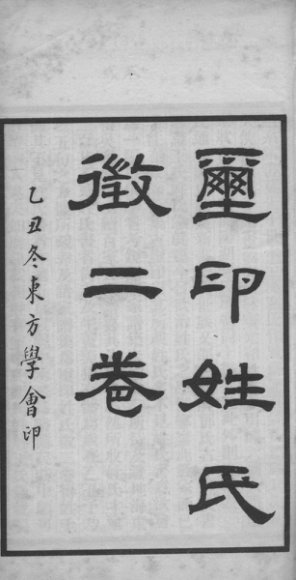 璽印姓氏
徵二卷
乙丑冬東方學會印